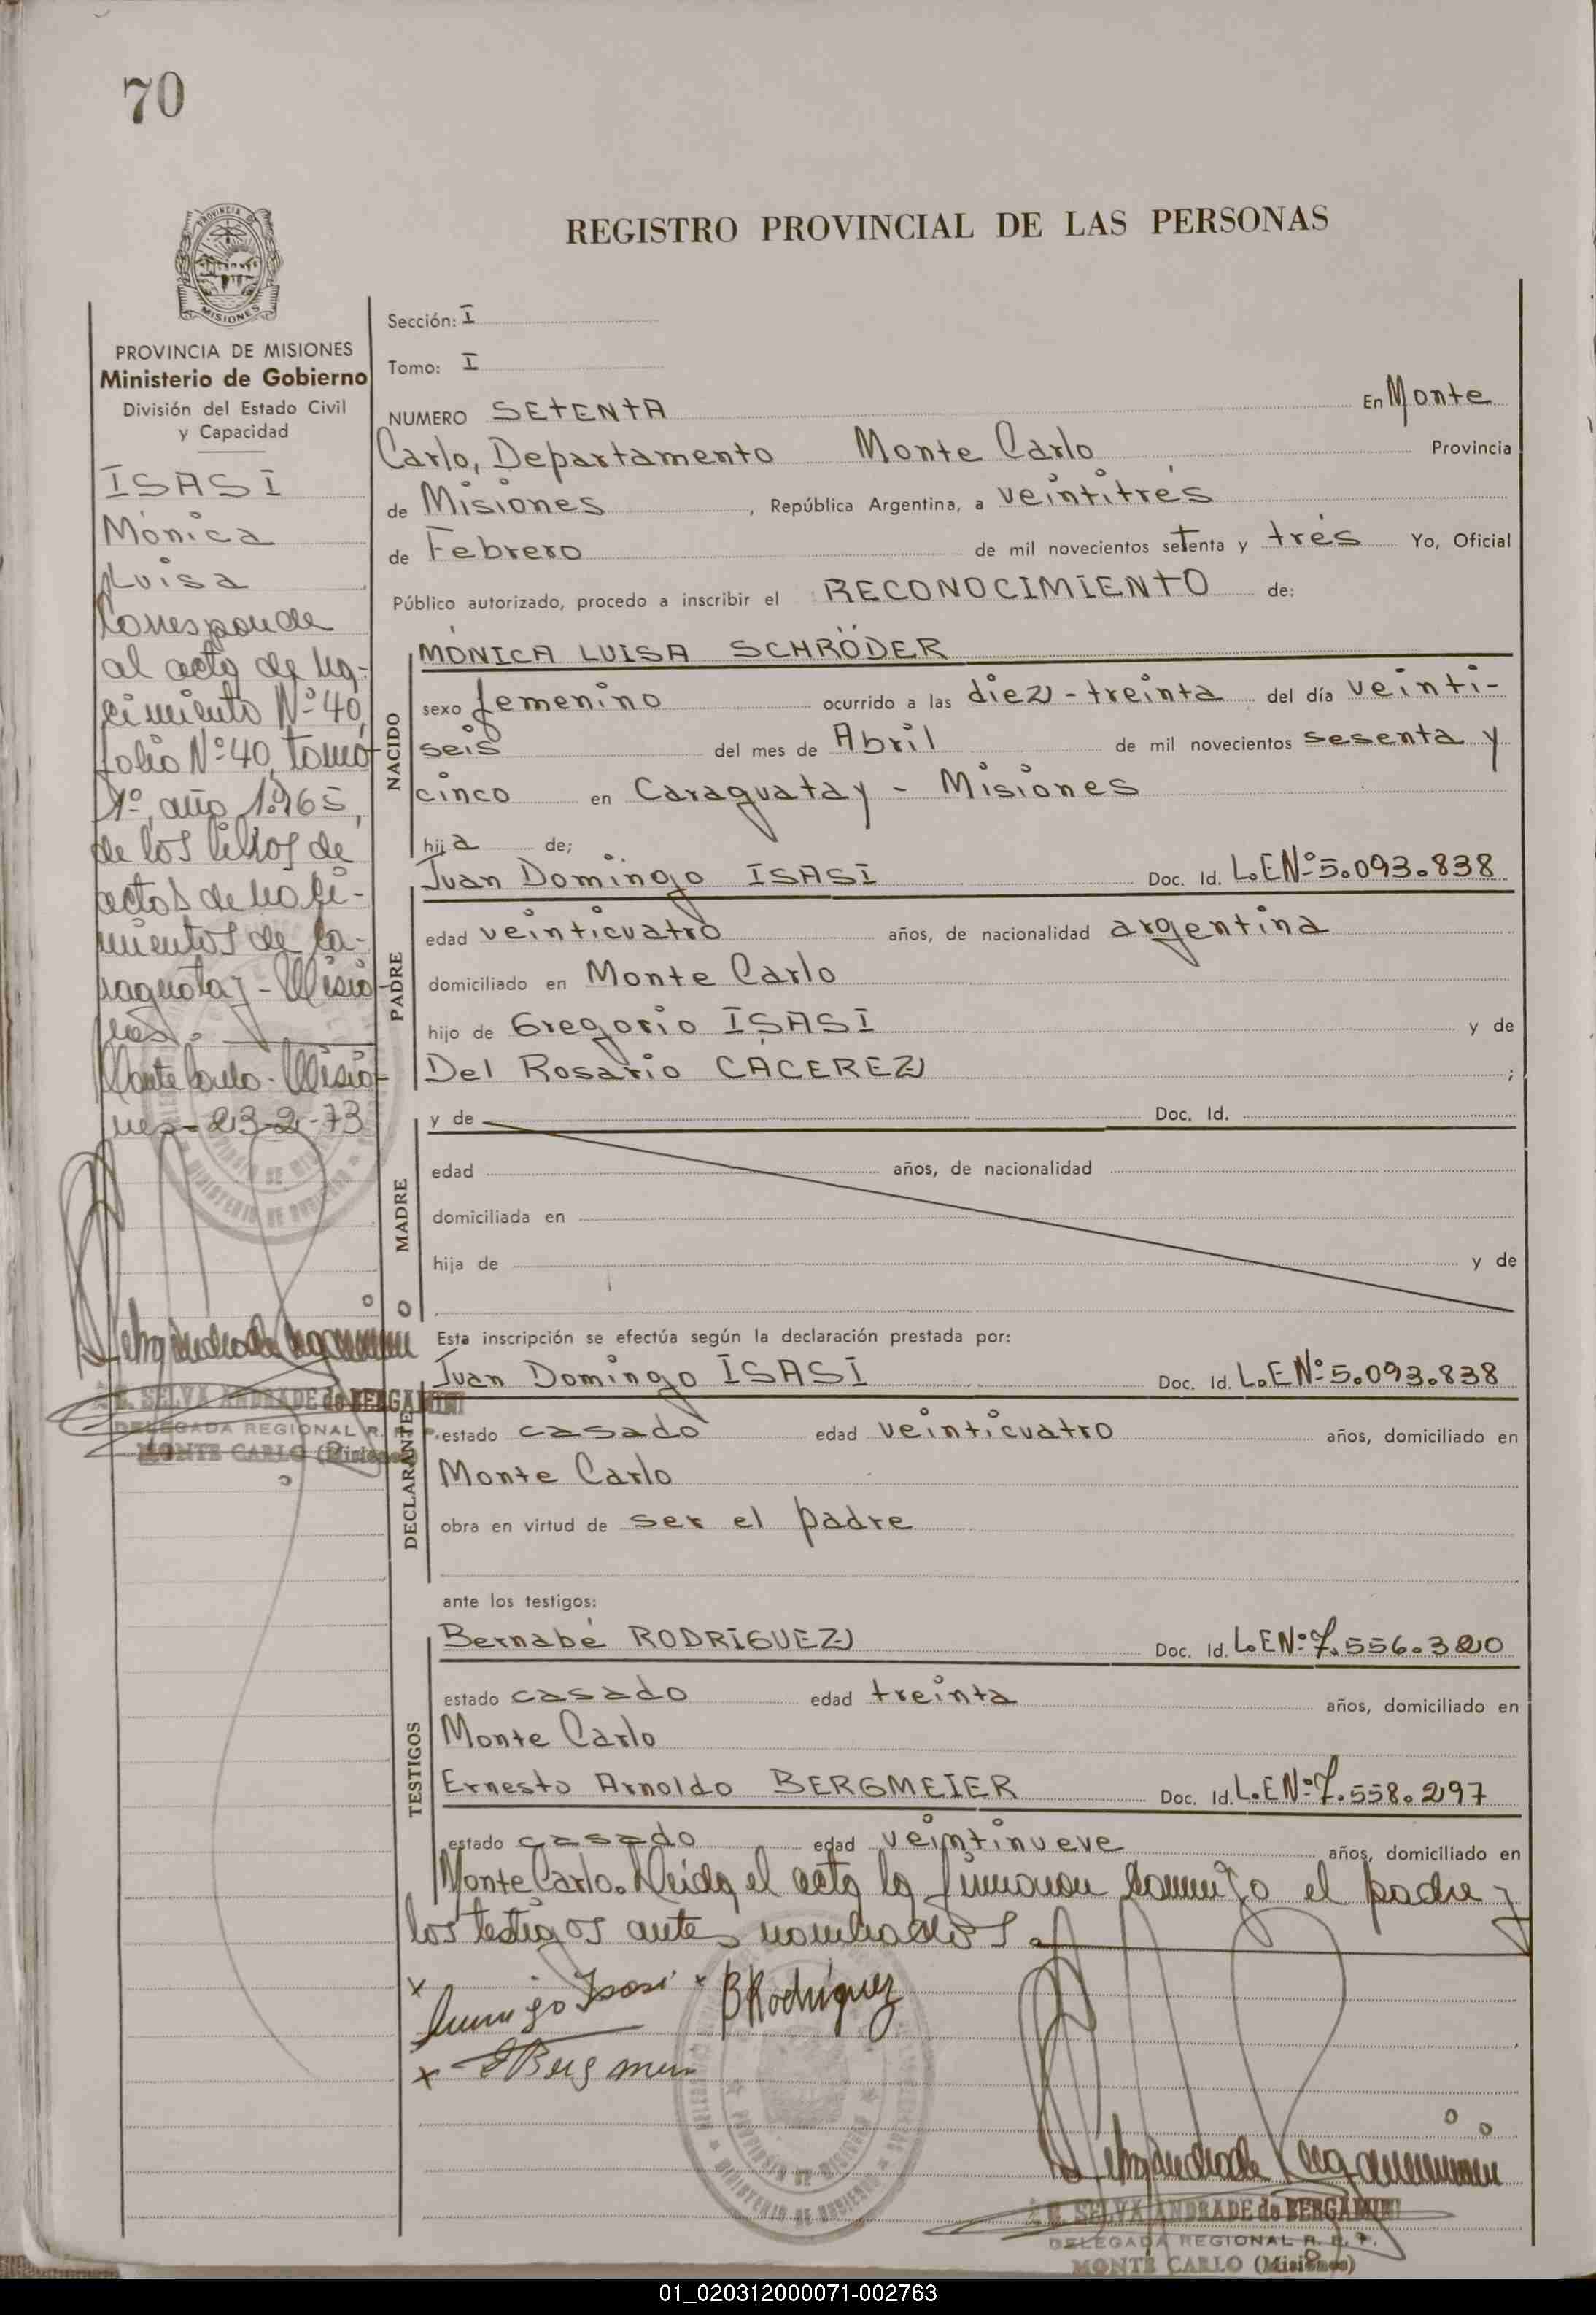 70
REGISTRO PROVINCIAL DE LAS PERSONAS
PROVINCIA DE MISIONES
Ministerio de Gobierno
División del Estado Civil
y Capacidad
ISASI
Mónica
Luisa
Corresponde
al acta de na-
cimiento Nº 40,
folio Nº 40, tomo
1º, año 1.965,
de los libros de
actas de naci-
mientos de Ca-
raguatay - Misio-
nes.
Monte Carlo - Misio-
nes - 23-2-73
S. SELVA ANDRADE de BERGAMINI
DELEGADA REGIONAL R. P. P.
MONTE CARLO (Misiones)
Sección: I
Tomo: I
NUMERO SETENTA En Monte
Carlo, Departamento Monte Carlo Provincia
de Misiones, República Argentina, a veintitrés
de Febrero de mil novecientos setenta y trés Yo, Oficial
Público autorizado, procedo a inscribir el RECONOCIMIENTO de:
NACIDO
MÓNICA LUISA SCHRÖDER
sexo femenino ocurrido a las diez - treinta del día veinti-
seis del mes de Abril de mil novecientos sesenta y
cinco en Caraguatay - Misiones
hija de;
PADRE
Juan Domingo ISASI Doc. Id. L.E Nº 5.093.838
edad veinticuatro años, de nacionalidad argentina
domiciliado en Monte Carlo
hijo de Gregorio ISASI y de
Del Rosario CÁCEREZ ;
MADRE
y de Doc. Id.
edad años, de nacionalidad
domiciliada en
hija de y de
Esta inscripción se efectúa según la declaración prestada por:
DECLARANTE
Juan Domingo ISASI Doc. Id. L.E Nº 5.093.838
estado casado edad veinticuatro años, domiciliado en
Monte Carlo
obra en virtud de ser el padre
ante los testigos:
TESTIGOS
Bernabé RODRÍGUEZ Doc. Id. L.E Nº 7.556.320
estado casado edad treinta años, domiciliado en
Monte Carlo
Ernesto Arnoldo BERGMEIER Doc. Id. L.E Nº 7.558.297
estado casado edad veintinueve años, domiciliado en
Monte Carlo. Leída el acta la firmaron conmigo el padre y
los testigos antes nombrados.
x Domingo Isasi x B Rodríguez
x
SELVA ANDRADE de BERGAMINI
DELEGADA REGIONAL R. P. P.
MONTE CARLO (Misiones)
01_020312000071-002763